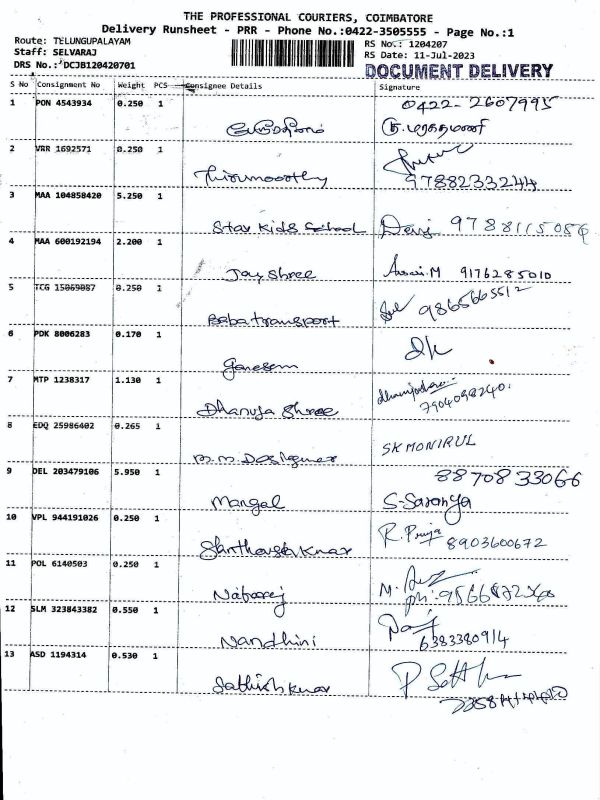 THE PROFESSIONAL COURIERS, COIMBATORE
Delivery Runsheet - PRR - Phone No.:0422-3505555 - Page No.:1
Route: TELUNGUPALAYAM
Staff: SELVARAJ
DRS No.: DCJB120420701
RS No.: 1204207
RS Date: 11-Jul-2023
DOCUMENT DELIVERY
S No Consignment No Weight PCS Consignee Details Signature
1 PON 4543934 0.250 1 0422-2607995
2 VRR 1692571 0.250 1
Thirumoorthy 9788233244
3 MAA 104858420 5.250 1
Star Kids School Devi
4 MAA 600192194 2.200 1
Jay Shree 9176285010
5 TCG 15069087 0.250 1
Baba transport 9865665512
6 PDK 8006283 0.170 1
Ganesan
7 MTP 1238317 1.130 1
Dhanuja Shree 7904098240
8 EDQ 25986402 0.265 1
SK MONIRUL
9 DEL 203479106 5.950 1 8870833066
Mangal S-Saranya
10 VPL 944191026 0.250 1
R. Priya 8903600672
11 POL 6140503 0.250 1
Nataraj
12 SLM 323843382 0.550 1
Nandhini 6383380914
13 ASD 1194314 0.530 1
Sathish kumar